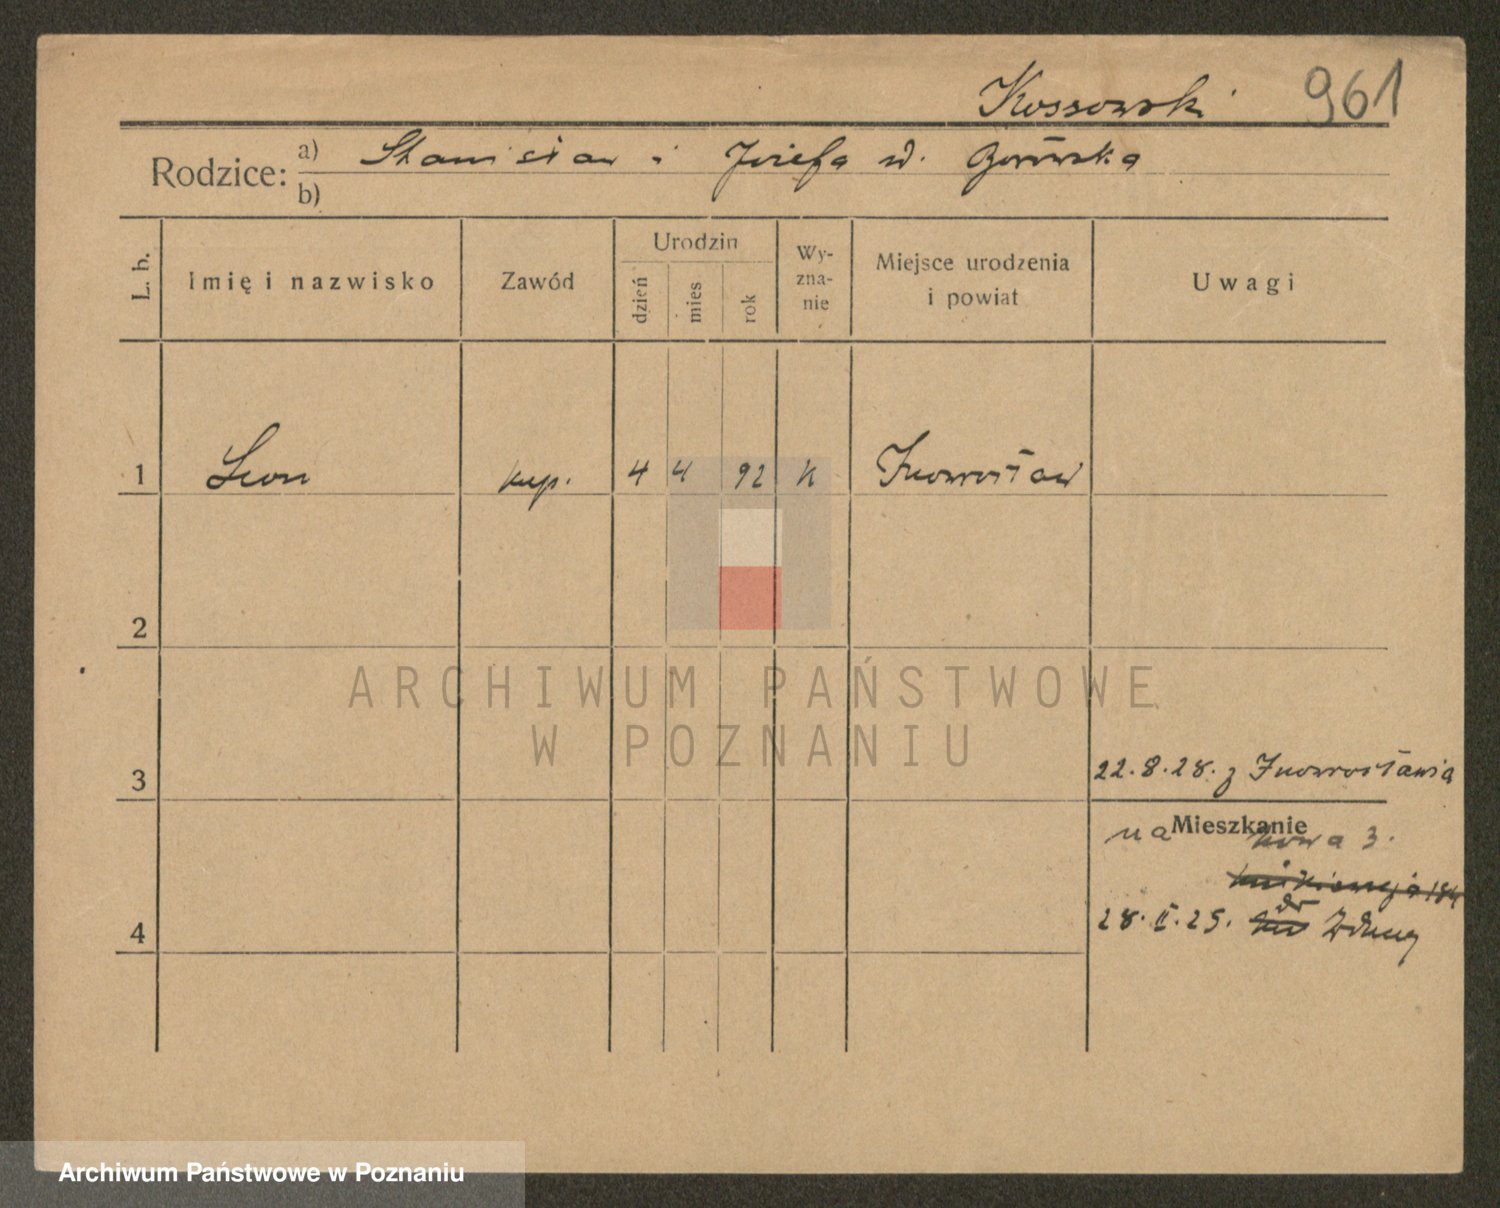 Kossowski 961
Rodzice: a) Stanisław i Józefa d. Górska
b)
L. b. Imię i nazwisko Zawód Urodzin dzień mies rok Wy-zna-nie Miejsce urodzenia i powiat Uwagi
1 Leon kup. 4 4 92 k Inowrocław
2
ARCHIWUM PAŃSTWOWE
W POZNANIU
3 22.8.28. z Inowrocławia
Mieszkanie
na Nowa 3.
28.II.25. Zduny
4
Archiwum Państwowe w Poznaniu